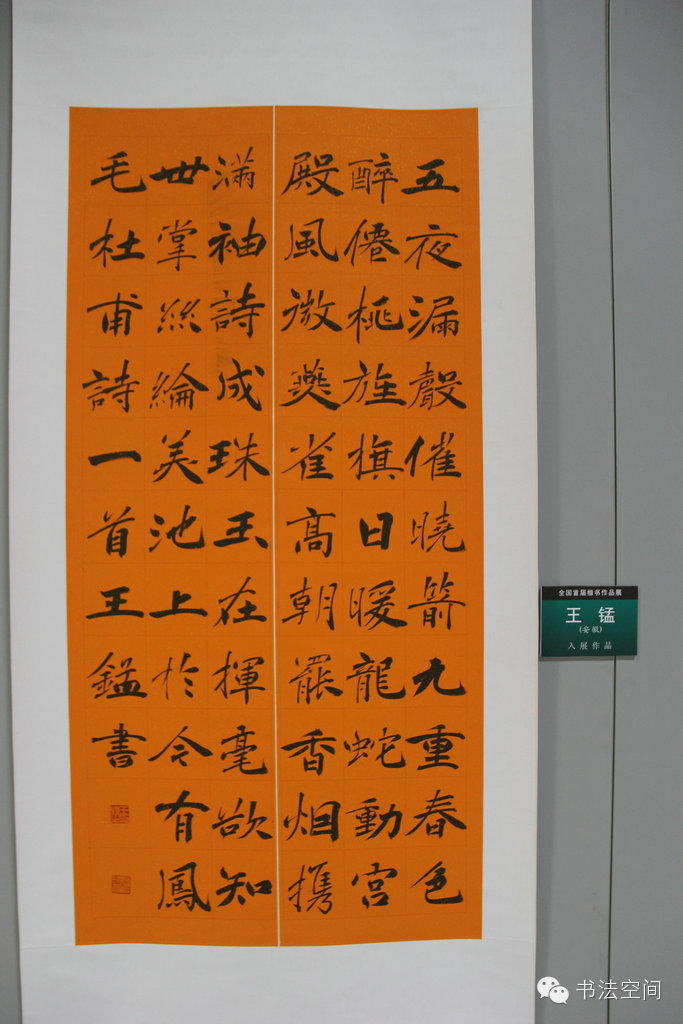 五夜漏聲催曉箭九重春色
醉僊桃旌旗日暖龍蛇動宮
殿風微燕雀高朝罷香烟携
滿袖詩成珠玉在揮毫欲知
世掌絲綸美池上於今有鳳
毛杜甫詩一首王鎰書
全国首届楷书作品展
王锰
(安徽)
入展作品
书法空间